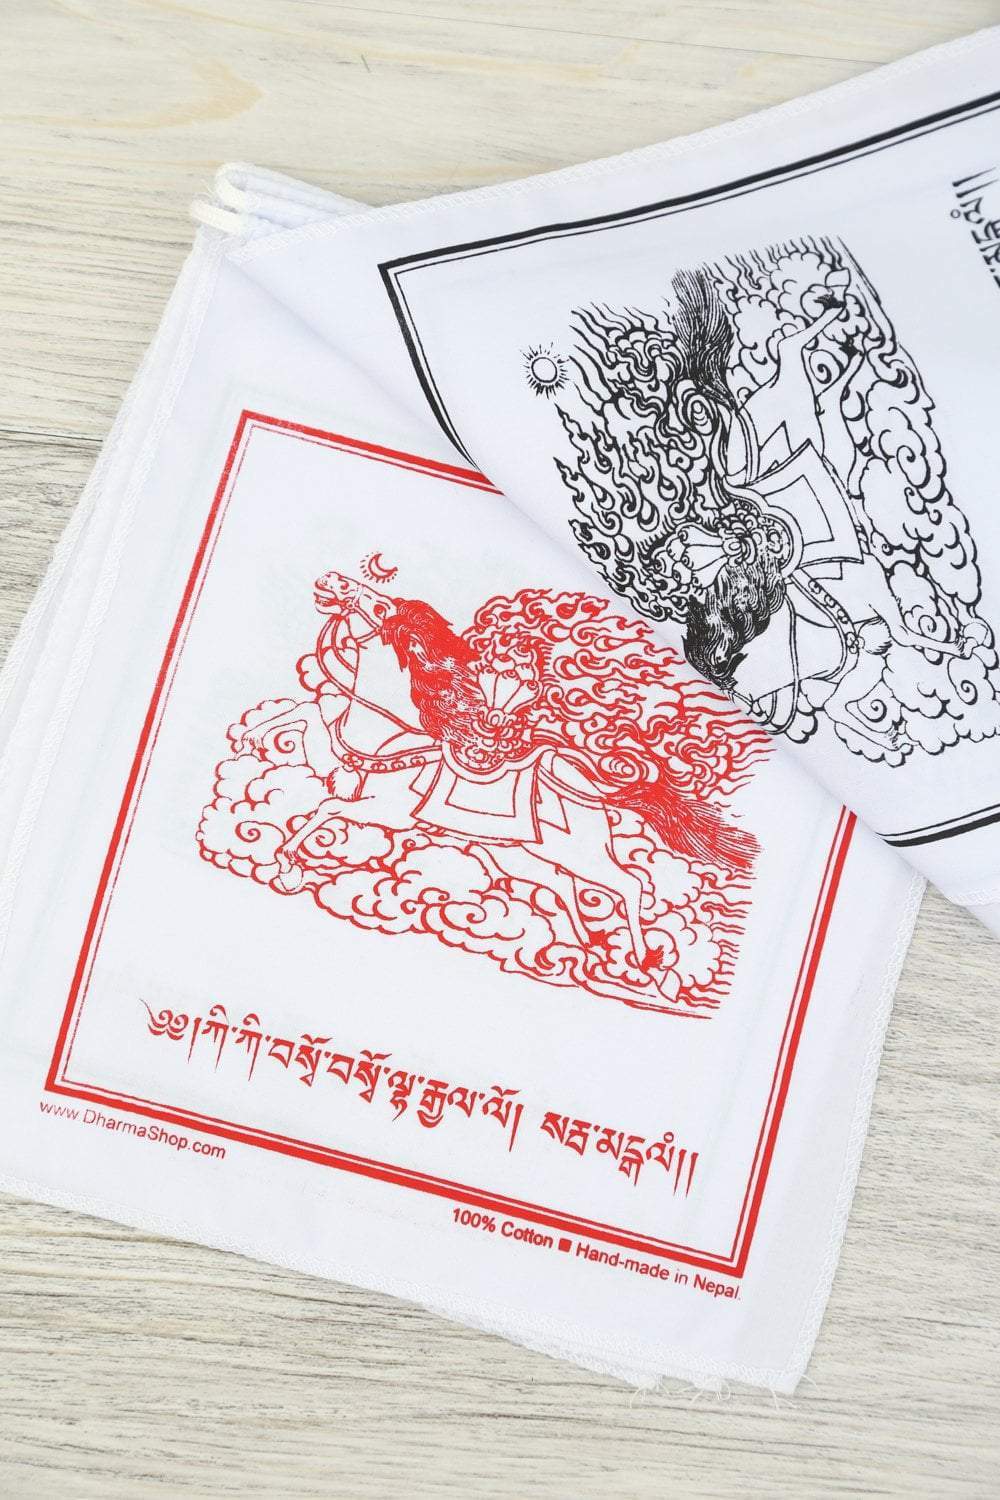 ༄༅།ཀི་ཀི་བསྭོ་བསྭོ་ལྷ་རྒྱལ་ལོ། སརྦ་མངྒལཾ།།
www.DharmaShop.com
100% Cotton ■ Hand-made in Nepal.